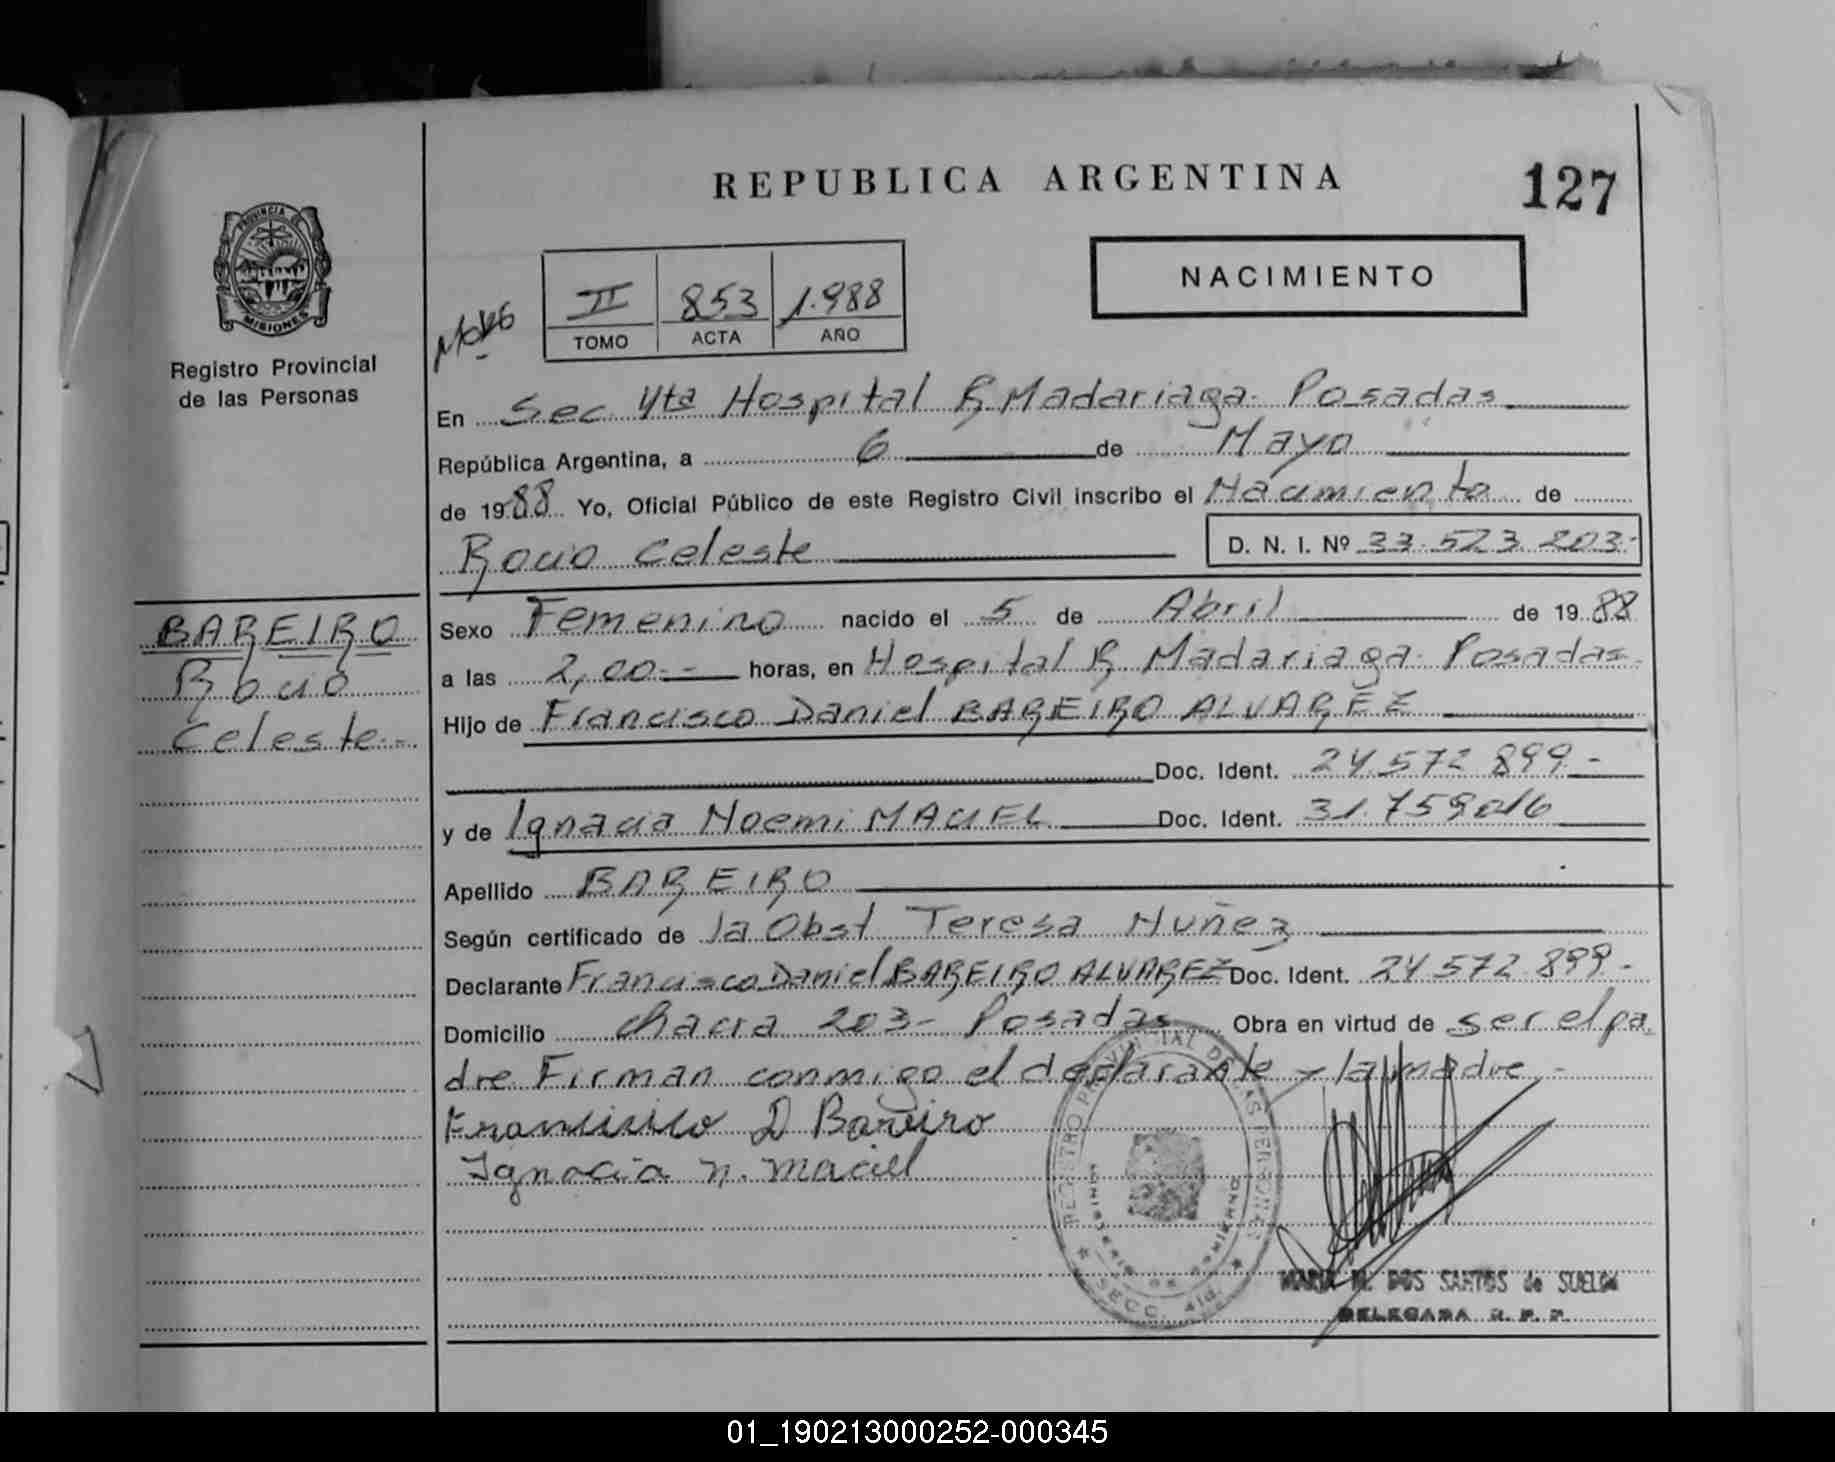 REPUBLICA ARGENTINA
127
PROVINCIA DE
MISIONES
Registro Provincial
de las Personas
NACIMIENTO
II 853 1.988
TOMO ACTA AÑO
En Sec 4ta Hospital R. Madariaga - Posadas
República Argentina, a 6 de Mayo
de 1988 Yo, Oficial Público de este Registro Civil inscribo el Nacimiento de
Rocio Celeste D. N. I. Nº 33.523.203-
BAREIRO
Rocio
Celeste -
Sexo Femenino nacido el 5 de Abril de 1988
a las 2,00 -- horas, en Hospital R. Madariaga - Posadas -
Hijo de Francisco Daniel BAREIRO ALVAREZ
Doc. Ident. 24.572.899 -
y de Ignacia Noemi MACIEL Doc. Ident. 31.759.016
Apellido BAREIRO
Según certificado de la Obst Teresa Nuñez
Declarante Francisco Daniel BAREIRO ALVAREZ Doc. Ident. 24.572.899 -
Domicilio Chacra 203 - Posadas Obra en virtud de ser el pa
dre Firman conmigo el declarante y la madre -
D Bareiro
Ignacia N. Maciel
REGISTRO PROVINCIAL DE LAS PERSONAS
MINISTERIO DE GOBIERNO
SECC. 4ta.
MARIA M. DOS SANTOS de SUELDO
DELEGADA R. P. P.
01_190213000252-000345